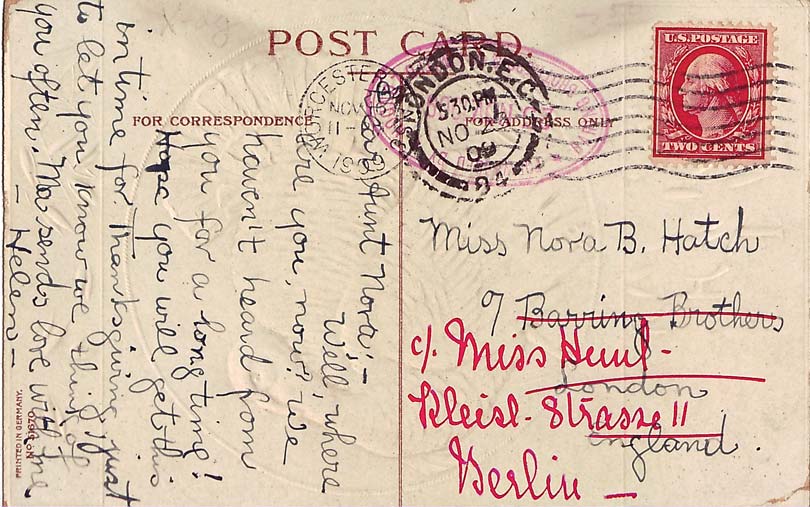 POST CARD
FOR CORRESPONDENCE
FOR ADDRESS ONLY
U.S. POSTAGE
TWO CENTS
WORCESTER
NOV
11
LONDON. E.C
5.30 PM
NO
09
84
Dear Aunt Nora; -
Well, where
are you, now? We
haven't heard from
you for a long time!
Hope you will get this
in time for Thanksgiving, just
to let you know we think of
you often. Ma sends love with me
- Helen -
Miss Nora B. Hatch
c/ Barring Brothers
London
England.
c/ Miss
Kleist-Strasse 11
Berlin
PRINTED IN GERMANY.